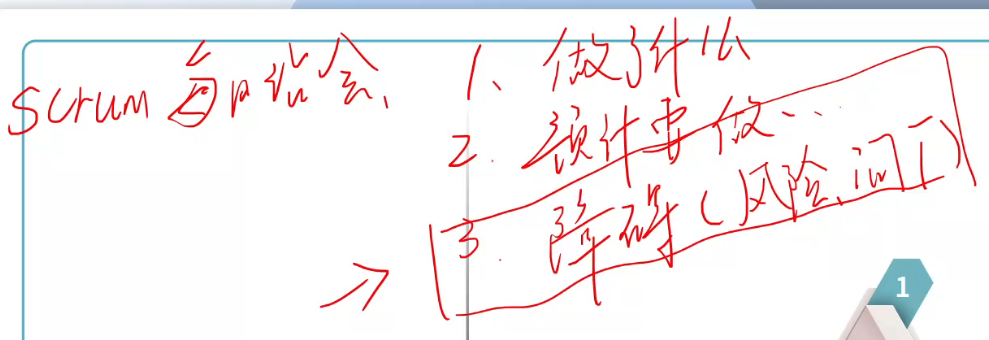 Scrum 每日站会、
1、做了什么
2. 预计要做...
3. 障碍(风险、问丁)
1